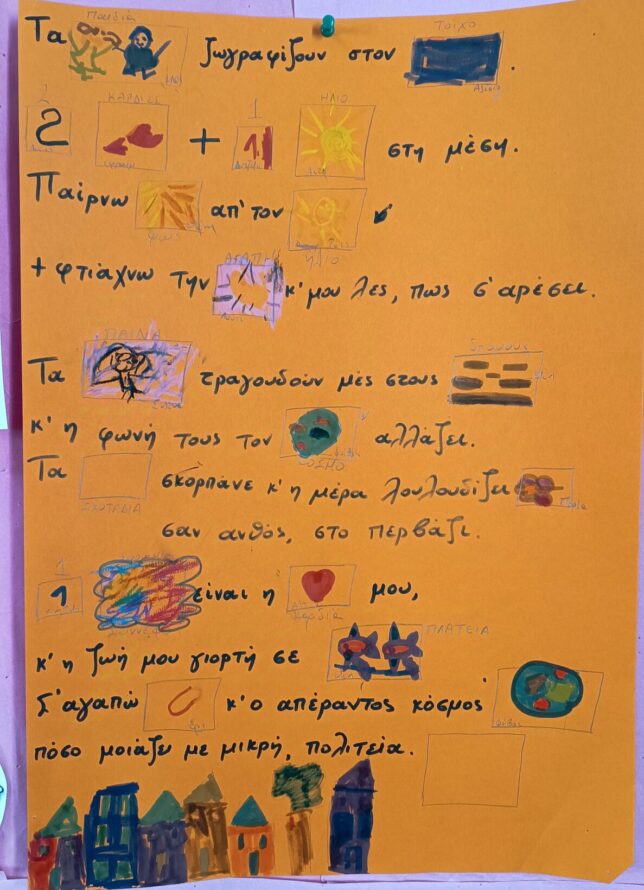 παιδιά τοίχο
Τα ζωγραφίζουν στον .
2 ΚΑΡΔΙΕΣ 1 ΗΛΙΟ
2 + 1 στη μέση.
Παίρνω απ' τον
φως ήλιο
ΑΓΑΠΗ
+ φτιάχνω την κ' μου λες, πως σ' αρέσει.
Τα τραγουδούν μες στους
κ' η φωνή τους τον αλλάζει.
ΚΟΣΜΟ
Τα σκορπάνε κ' η μέρα λουλουδίζει
ΣΚΟΤΑΔΙΑ
σαν ανθός, στο περβάζι.
1
1 είναι η μου,
καρδιά
ΠΛΑΤΕΙΑ
κ' η ζωή μου γιορτή σε
Σ' αγαπώ κ' ο απέραντος κόσμος
πόσο μοιάζει με μικρή, πολιτεία.